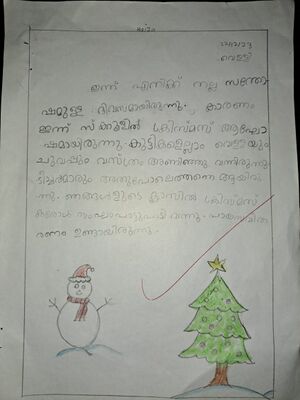 വെള്ളി
ഇന്ന് എനിക്ക് നല്ല സന്തോ
ഷമുള്ള ദിവസമായിരുന്നു. കാരണം
ഇന്ന് സ്കൂളിൽ ക്രിസ്മസ് ആഘോ
ഷമായിരുന്നു. കുട്ടികളെല്ലാം വെള്ളയും
ചുവപ്പും വസ്ത്രം അണിഞ്ഞു വന്നിരുന്നു
ടീച്ചർമാരും അതുപോലെത്തന്നെ ആയിരു
ന്നു. ഞങ്ങളുടെ ക്ലാസിൽ ക്രിസ്മസ്
കരോൾ വന്നു. പായസവിത
രണം ഉണ്ടായിരുന്നു.